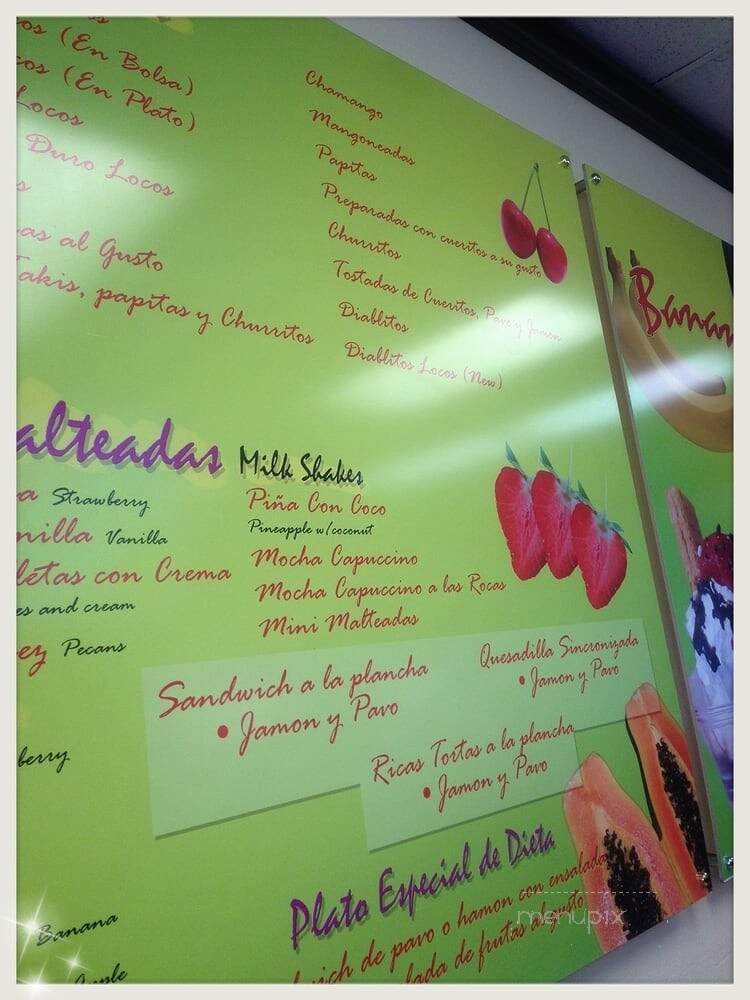 (En Bolsa)
(En Plato)
Locos
Duro Locos
al Gusto
Takis, papitas y Churritos
Chamango
Mangoneadas
Papitas
Preparadas con cueritos a su gusto
Churritos
Tostadas de Cueritos, Pavo y Jamon
Diablitos
Diablitos Locos (New)
Banan
alteadas Milk Shakes
Strawberry
nilla Vanilla
letas con Crema
es and cream
ez Pecans
berry
Banana
Piña Con Coco
Pineapple w/coconut
Mocha Capuccino
Mocha Capuccino a las Rocas
Mini Malteadas
Sandwich a la plancha
• Jamon y Pavo
Quesadilla Sincronizada
• Jamon y Pavo
Ricas Tortas a la plancha
• Jamon y Pavo
Plato Especial de Dieta
wich de pavo o hamon con ensalada
lada de frutas al gusto
menupix